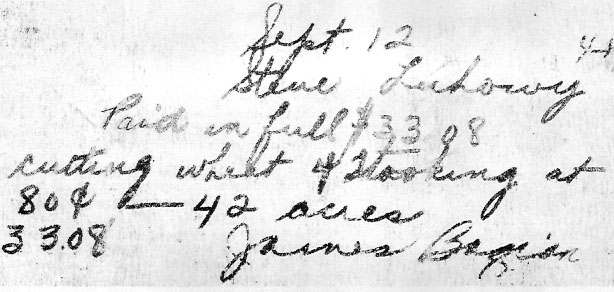 Sept. 12 44
Steve Luhowy
Paid in full $33.08
cutting wheat & stooking at
80¢ — 42 acres
33.08 James